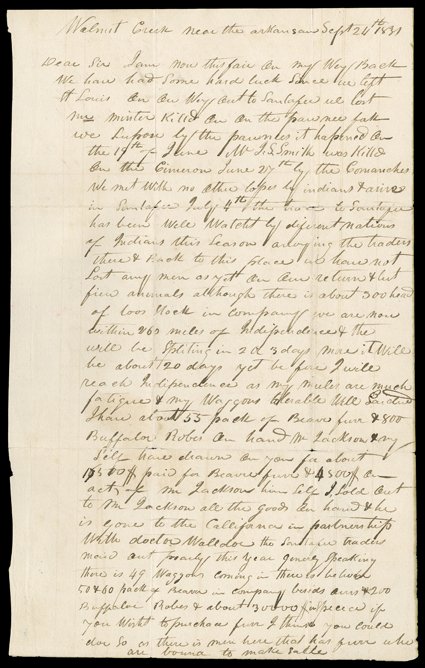 Walnut Creek near the arkansas Sept 24th 1831
Dear Sir I am now this fair on my Way Back
We have had Some hard luck Since we left
St Louis on our Way out to Santafee we lost
Mr minter Killed on the pawnee fork
we Supose by the pawnees it hapened on
the 19th of June Mr J. S. Smith was Killd
on the Cimeron June 27th by the Comanches
We met With no other losses by indians & arive
in Santafee July 4th the trace to Santafee
has been Well Watcht by diferent nations
of Indians this Season anoying the traders
there & Back to this place we have not
Lost any men as yett on our return & but
fiew animals although there is about 300 head
of loos Stock in company we are now
within 260 miles of Independence & the
will be Spliting in 2 or 3 days more it Will
be about 20 days yet be fore I will
reach Independence as my mules are much
fatigue & my Waggons
I have about 55 pack of Beave furr & 800
Buffaloe Robes on hand Mr Jackson & my
Self have drawn on you for about
paid for Beaver furr & on
act of Mr Jackson him Self I Sold out
to Mr Jackson all the goods on hand & he
is gone to the Callifornia in partnership
With doctor Waldoe the Santafee traders
maid out poarly this Year generly Speaking
there is 49 Waggons coming in there is between
50 & 60 packs Beaver in company besids ours & 200
Buffaloe Robes & about 30000 $ in Specia if
you Wisht to purchase furr I think you could
doe So as there is men here that has furr who
are bound to make Salle